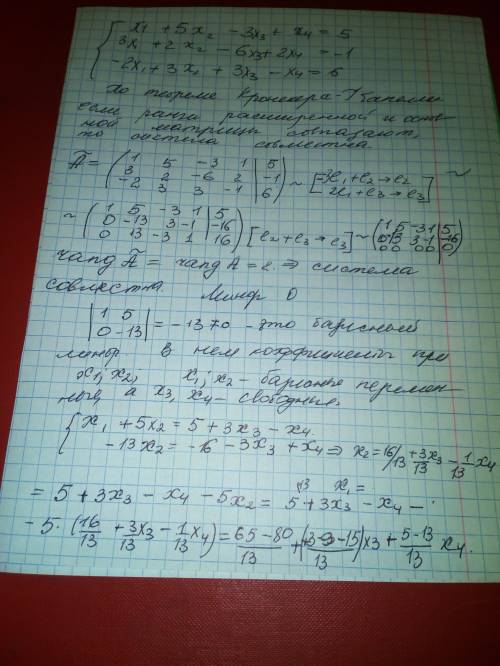 x₁ + 5x₂ - 3x₃ + x₄ = 5
3x₁ + 2x₂ - 6x₃ + 2x₄ = -1
-2x₁ + 3x₁ + 3x₃ - x₄ = 6
По теореме Кронекера-Капелли
если ранги расширенной и основ-
ной матрицы совпадают,
то система совместна
Ā = ( 1 5 -3 1 | 5
3 2 -6 2 | -1
-2 3 3 -1 | 6 ) ~ [ -3l₁ + l₂ → l₂
2l₁ + l₃ → l₃ ] ~
~ ( 1 5 -3 1 | 5
0 -13 3 -1 | -16
0 13 -3 1 | 16 ) [ l₂ + l₃ → l₃ ] ~ ( 1 5 -3 1 | 5
0 -13 3 -1 | -16
0 0 0 0 | 0 )
rang Ā = rang A = 2 ⇒ система
совместна. Минор
| 1 5
0 -13 | = -13 ≠ 0 - это базисный
минор. В нем коэффициенты при
x₁; x₂; x₁; x₂ - базисные перемен-
ные, а x₃, x₄ - свободные.
{ x₁ + 5x₂ = 5 + 3x₃ - x₄
-13x₂ = -16 - 3x₃ + x₄ ⇒ x₂ = 16/13 + 3x₃/13 - 1/13 x₄
x₁ =
= 5 + 3x₃ - x₄ - 5x₂ = 5 + 3x₃ - x₄ -
- 5 · (16/13 + 3/13 x₃ - 1/13 x₄) = (65 - 80)/13 + x₃ + (5 - 13)/13 x₄.